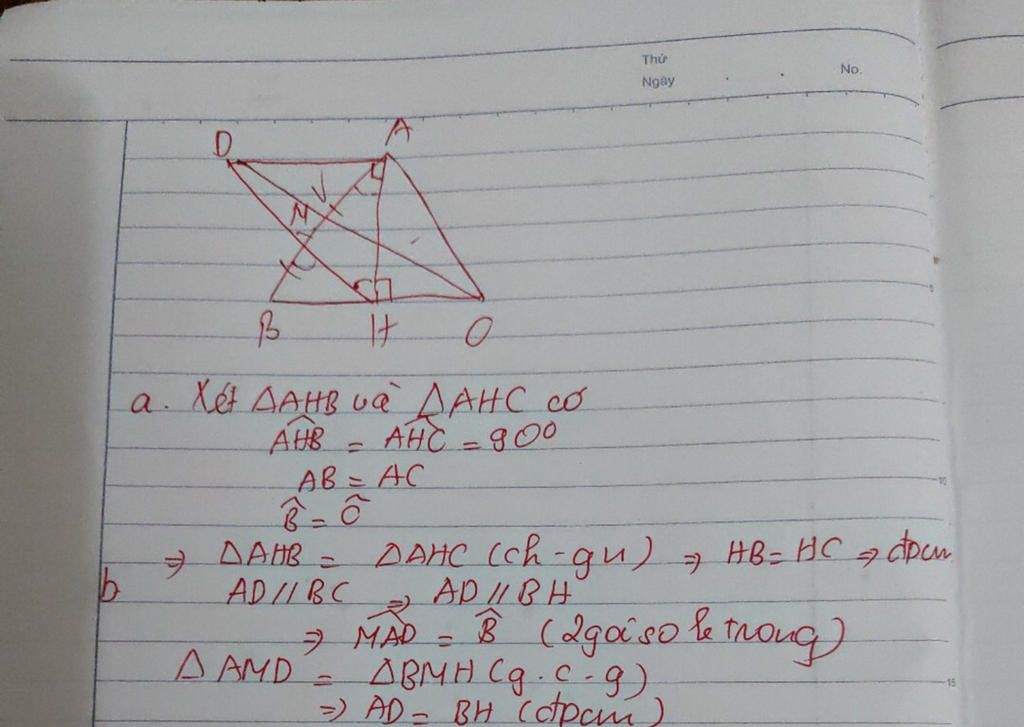 Thứ
Ngày
No.
D A
M
B H C
5
a. Xét ΔAHB và ΔAHC có
\widehat{AHB} = \widehat{AHC} = 90⁰
AB = AC
\widehat{B} = \widehat{C}
10
⇒ ΔAHB = ΔAHC (ch - gn) ⇒ HB = HC ⇒ đpcm
b AD // BC ⇒ AD // BH
⇒ \widehat{MAD} = \widehat{B} (2 góc so le trong)
ΔAMD = ΔBMH (g.c-g)
15
⇒ AD = BH (đpcm)